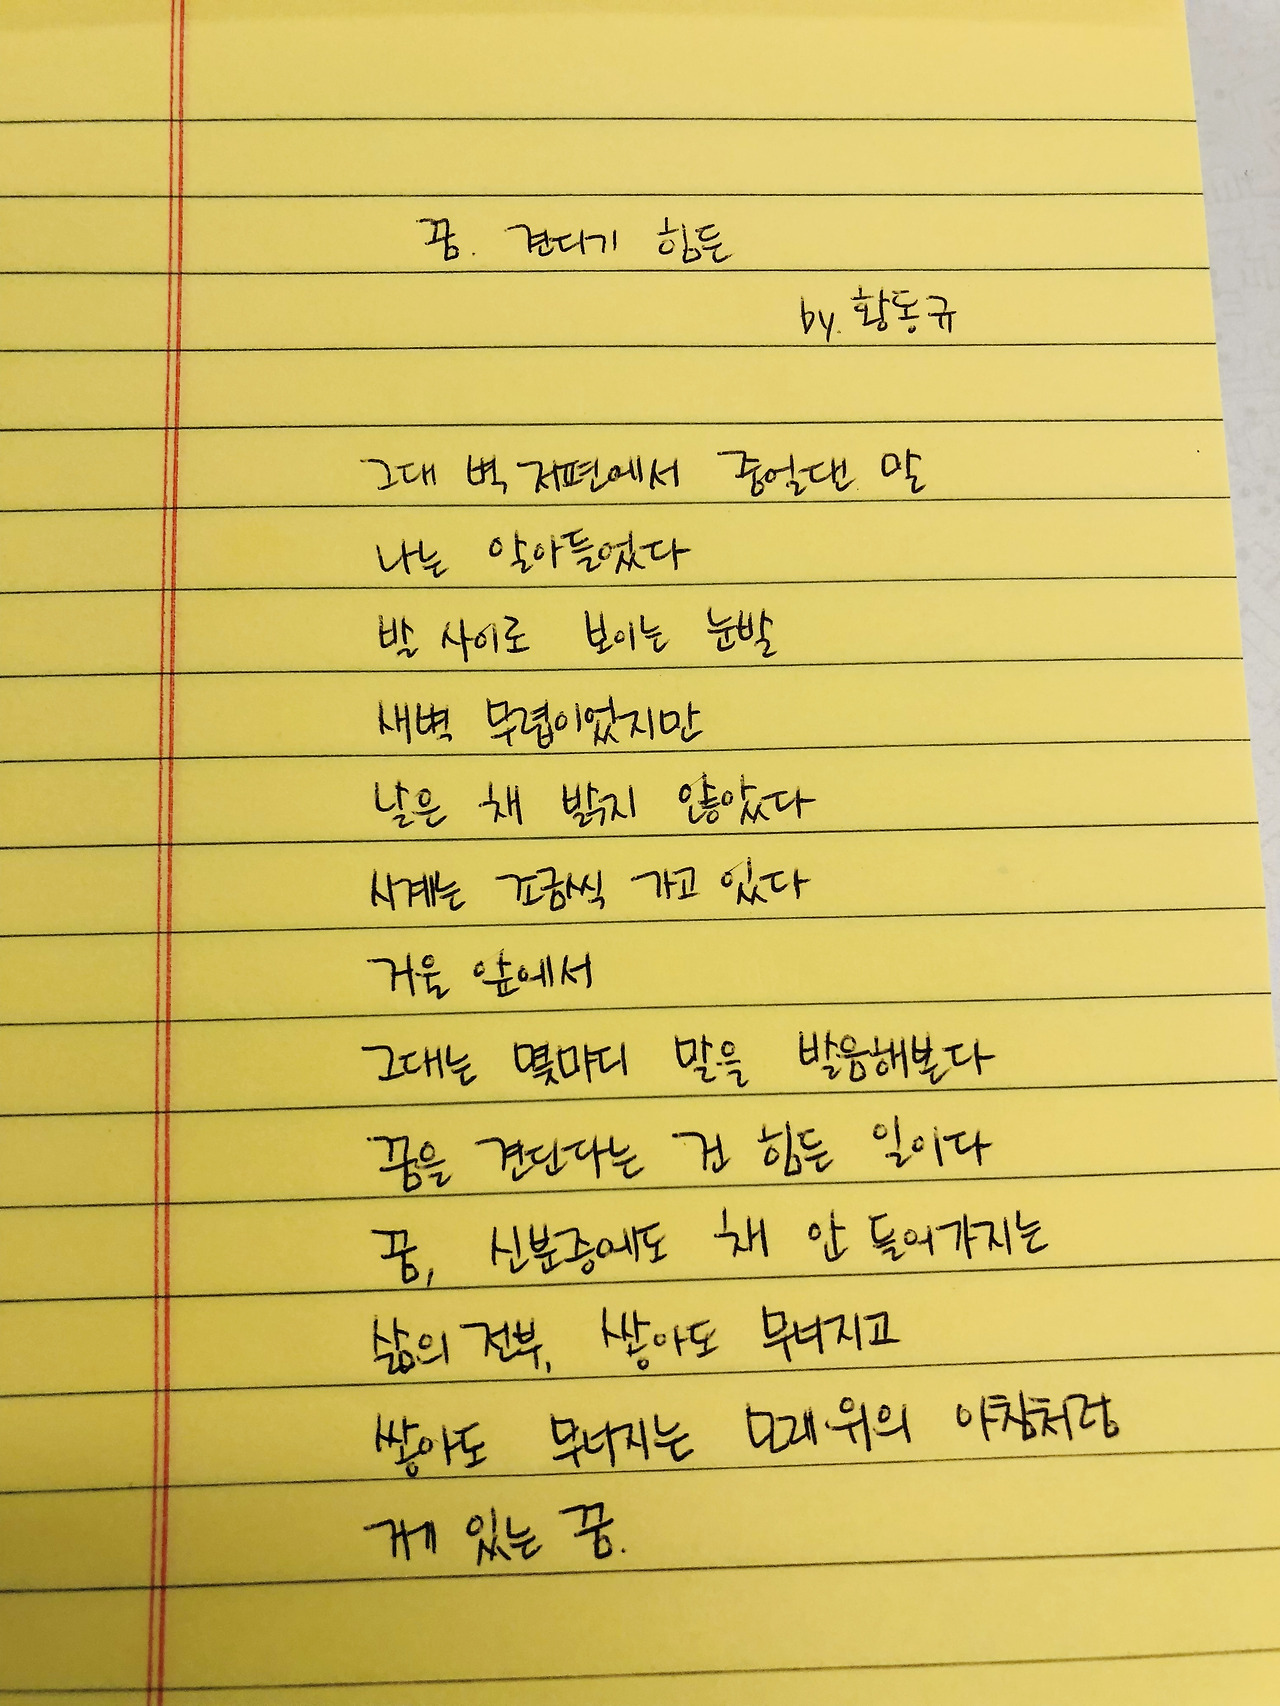 꿈. 견디기 힘든
by. 황동규
그대 벽 저편에서 중얼댄 말
나는 알아들었다
발 사이로 보이는 눈발
새벽 무렵이었지만
날은 채 밝지 않았다
시계는 조금씩 가고 있다
거울 앞에서
그대는 몇마디 말을 발음해본다
꿈을 견딘다는 건 힘든 일이다
꿈, 신분증에도 채 안 들어가지는
삶의 전부, 쌓아도 무너지고
쌓아도 무너지는 모래 위의 아침처럼
거게 있는 꿈.